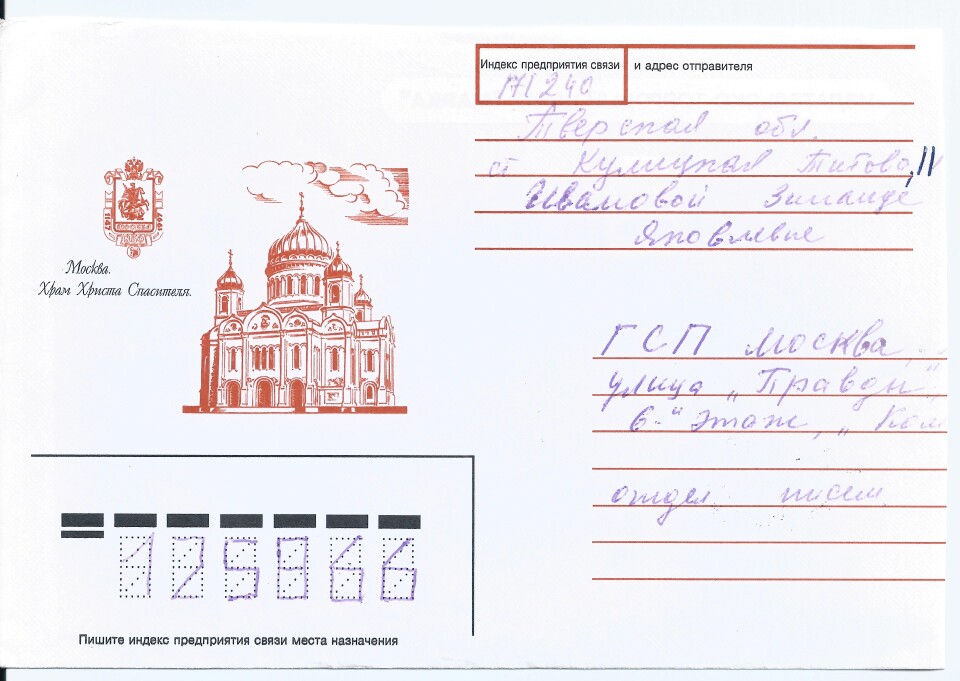 Индекс предприятия связи и адрес отправителя
171240
Тверская обл.
ст Кулицкая Титова,
Ивановой Зинаиде
Яковлевне
1147 1997
Москва.
Храм Христа Спасителя.
ГСП Москва,
улица „Правды",
6-й этаж, „Ком
отдел писем
125966
Пишите индекс предприятия связи места назначения